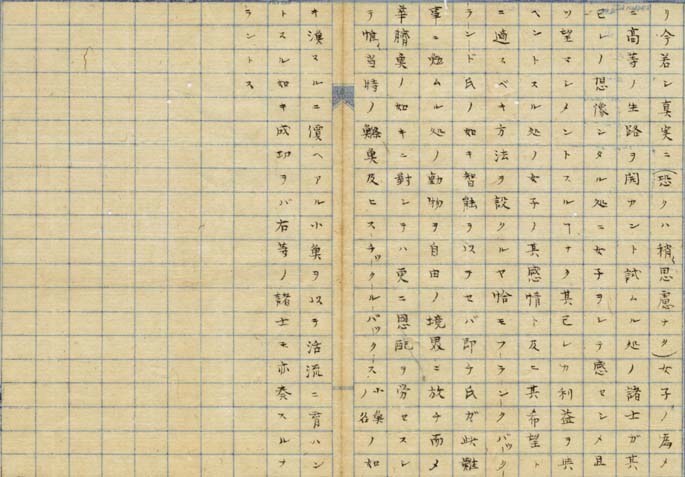 リ今若シ真実ニ(恐クハ稍〻思慮ナク)女子ノ為メ
ニ高等ノ生路ヲ開カント試ムル処ノ諸士ガ其
己レノ恐像シタル処ニ女子ヲシテ感セシメ且
ツ望マシメントスルヿナク其己レカ利益ヲ與
ヘントスル処ノ女子ノ其感情ト及ニ其希望ト
ニ適スベキ方法ヲ設クルヤ恰モフランクバックー
ランド氏ノ如キ智能ヲ以テセバ即チ氏ガ此難
事ニ勉ムル処ノ動物ヲ自由ノ境界ニ放チ而メ
華臍魚ノ如キニ對シテハ更ニ思配ヲ労セスシ
テ惟、当時ノ魚及ヒスチックルバックース(小魚名)ノ如
キ漁スルニ價ヘアル小魚ヲ以テ活流ニ育ハン
トスル如キ成功ヲバ右等ノ諸士モ亦奏スルナ
ラントス